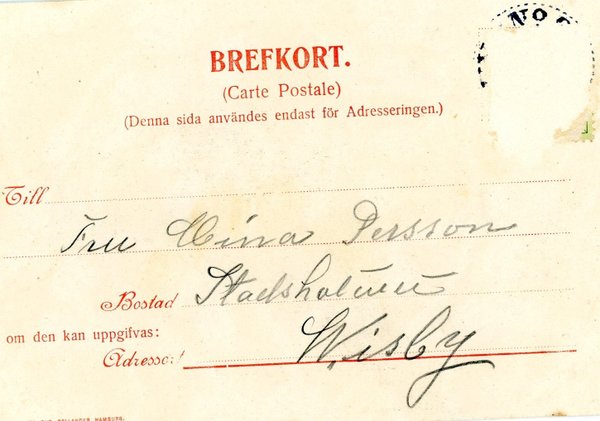 BREFKORT.
(Carte Postale)
(Denna sida användes endast för Adresseringen.)
Till
Fru Mina Persson
Bostad Stadsholmen
om den kan uppgifvas:
Adressort Wisby
HAMBURG.